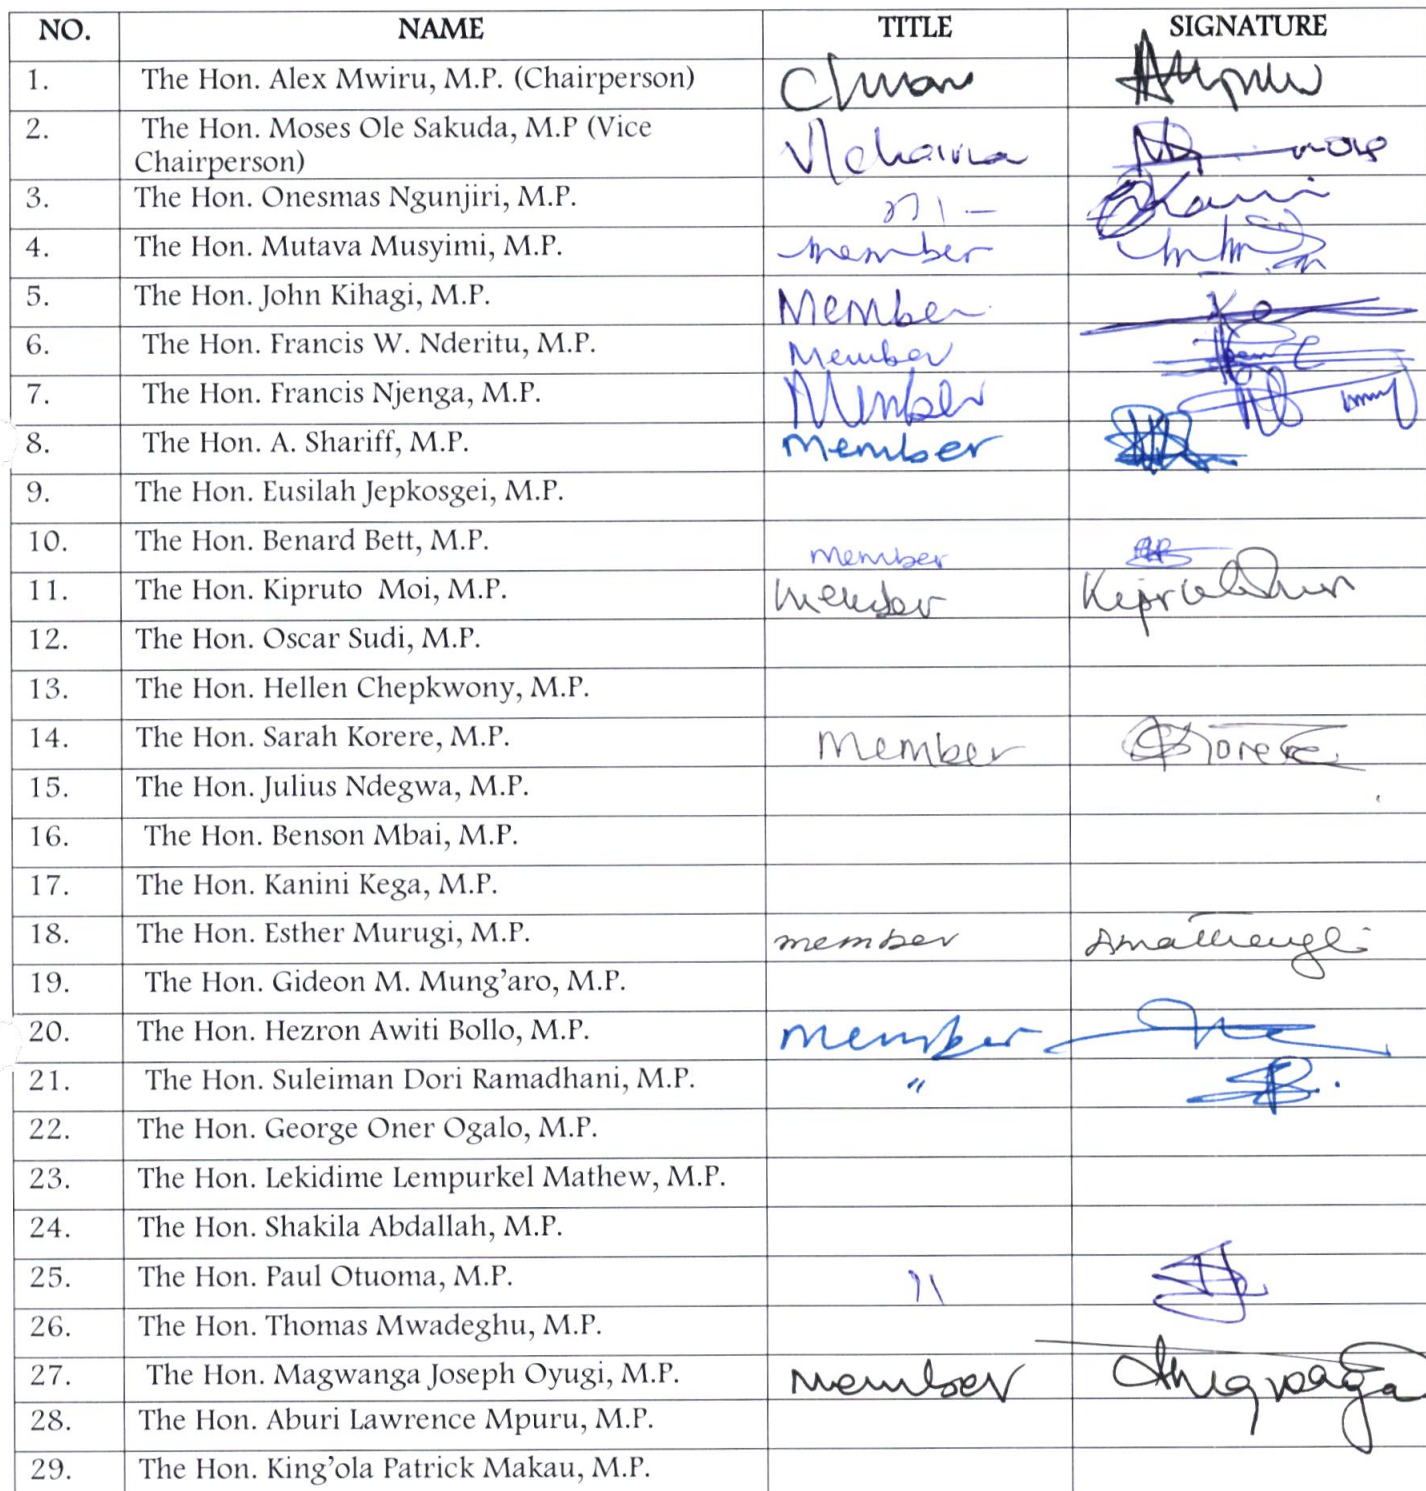 NO. NAME TITLE SIGNATURE
1. The Hon. Alex Mwiru, M.P. (Chairperson)
2. The Hon. Moses Ole Sakuda, M.P (Vice
Chairperson)
3. The Hon. Onesmas Ngunjiri, M.P.
4. The Hon. Mutava Musyimi, M.P. member
5. The Hon. John Kihagi, M.P. Member
6. The Hon. Francis W. Nderitu, M.P. Member
7. The Hon. Francis Njenga, M.P. Member
8. The Hon. A. Shariff, M.P. Member
9. The Hon. Eusilah Jepkosgei, M.P.
10. The Hon. Benard Bett, M.P. member
11. The Hon. Kipruto Moi, M.P. Member
12. The Hon. Oscar Sudi, M.P.
13. The Hon. Hellen Chepkwony, M.P.
14. The Hon. Sarah Korere, M.P. Member Korere
15. The Hon. Julius Ndegwa, M.P.
16. The Hon. Benson Mbai, M.P.
17. The Hon. Kanini Kega, M.P.
18. The Hon. Esther Murugi, M.P. member
19. The Hon. Gideon M. Mung'aro, M.P.
20. The Hon. Hezron Awiti Bollo, M.P. member
21. The Hon. Suleiman Dori Ramadhani, M.P. "
22. The Hon. George Oner Ogalo, M.P.
23. The Hon. Lekidime Lempurkel Mathew, M.P.
24. The Hon. Shakila Abdallah, M.P.
25. The Hon. Paul Otuoma, M.P. "
26. The Hon. Thomas Mwadeghu, M.P.
27. The Hon. Magwanga Joseph Oyugi, M.P. Member
28. The Hon. Aburi Lawrence Mpuru, M.P.
29. The Hon. King'ola Patrick Makau, M.P.